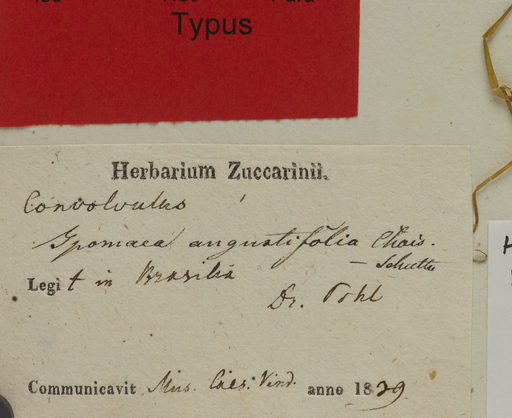 Typus
Herbarium Zuccarinii.
Convolvulus
Ipomaea angustifolia Chois.
Legit in Brasilia
Dr. Pohl
Communicavit Mus. Caes. Vind. anno 1839
H